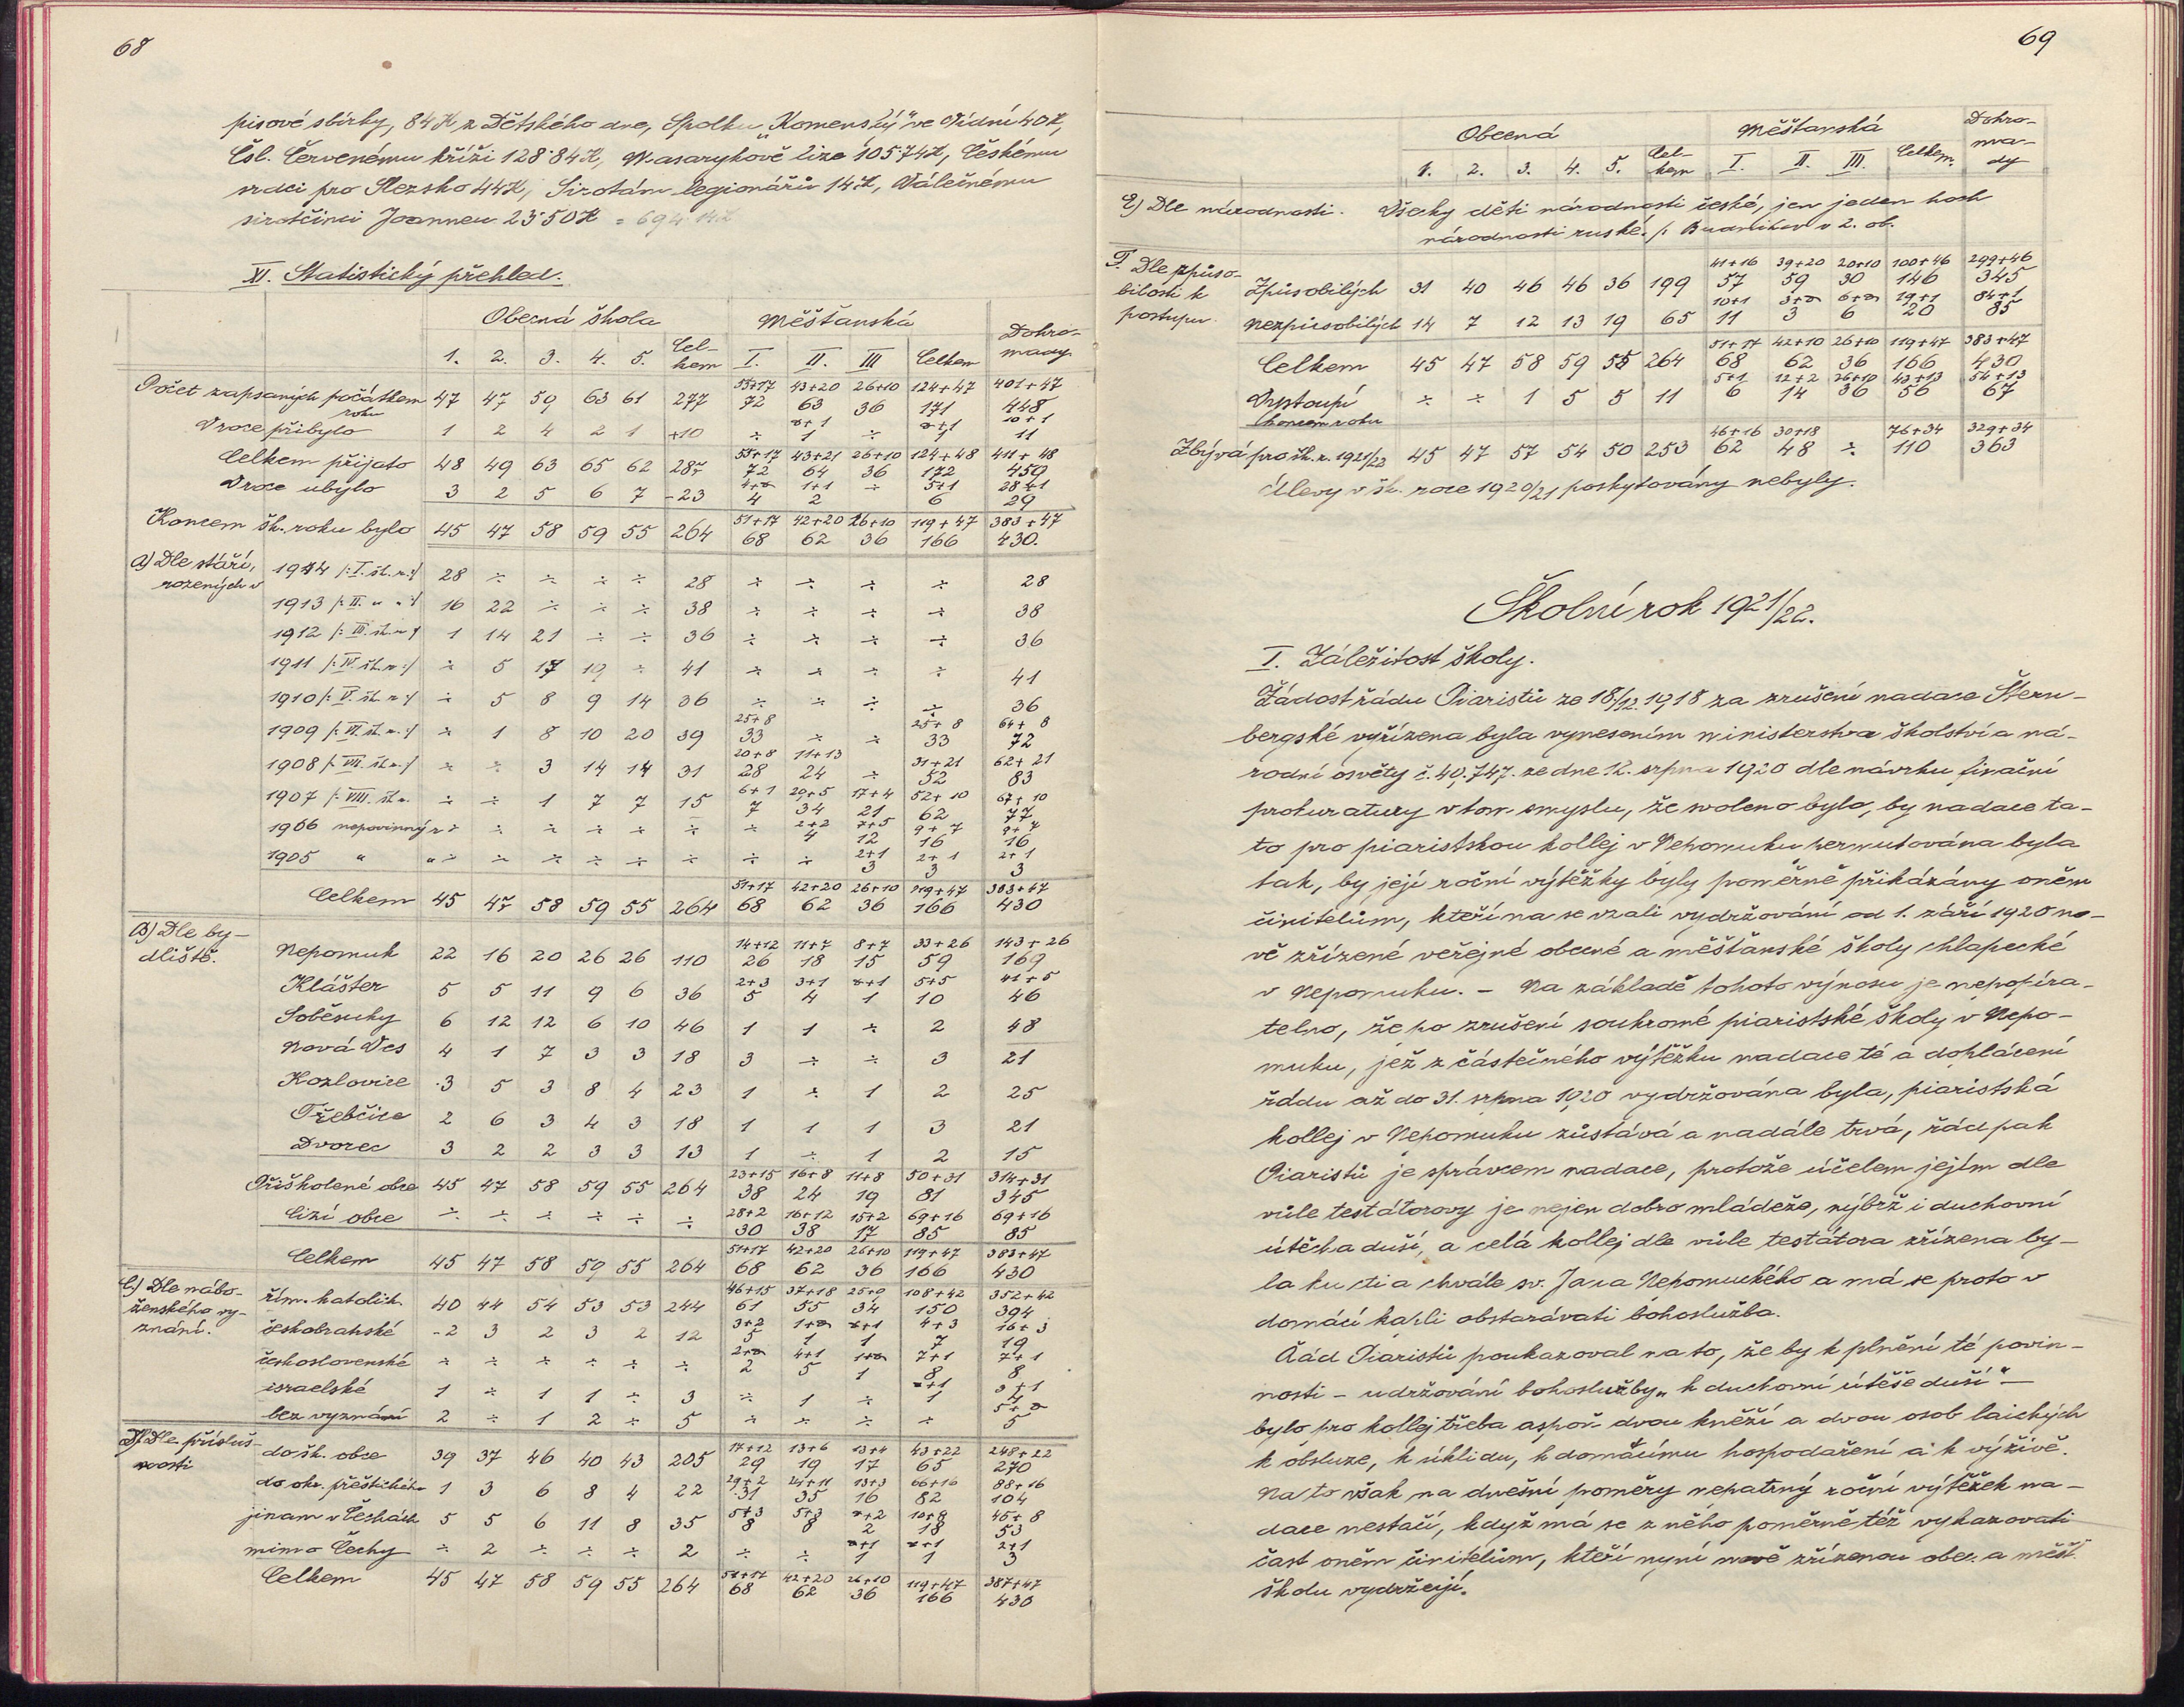 68
pisové sbírky, 84 K z Dětského dne, Spolku „Komenský" ve Vídni 40 K,
Čsl. Červenému kříži 128·84 K, Masarykově lize 105·74 K, Českému
srdci pro Slezsko 44 K, Sirotám legionářů 14 K, Válečnému
sirotčinci Joanneu 23·50 K = 694·14 K
XI. Statistický přehled.
Obecná škola Měšťanská Dohro-
1. 2. 3. 4. 5. Cel-kem I. II. III Celkem mady
55+17 43+20 26+10 124+47 401+47
Počet zapsaných počátkem roku 47 47 59 63 61 277 72 63 36 171 448
÷+1 ÷+1 10+1
V roce přibylo 1 2 4 2 1 +10 ÷ 1 ÷ 1 11
55+17 43+21 26+10 124+48 411+48
Celkem přijato 48 49 63 65 62 287 72 64 36 172 459
4+÷ 1+1 ÷ 5+1 28+1
V roce ubylo 3 2 5 6 7 -23 4 2 6 29
51+17 42+20 26+10 119+47 383+47
Koncem šk. roku bylo 45 47 58 59 55 264 68 62 36 166 430.
A) Dle stáří, rozených v
1914 /: I. šk. r. :/ 28 ÷ ÷ ÷ ÷ 28 ÷ ÷ ÷ ÷ 28
1913 /: II. " " :/ 16 22 ÷ ÷ ÷ 38 ÷ ÷ ÷ ÷ 38
1912 /: III. šk. r. :/ 1 14 21 ÷ ÷ 36 ÷ ÷ ÷ ÷ 36
1911 /: IV. šk. r. :/ ÷ 5 17 19 ÷ 41 ÷ ÷ ÷ ÷ 41
1910 /: V. šk. r. :/ ÷ 5 8 9 14 36 ÷ ÷ ÷ ÷ 36
25+8 25+8 64+8
1909 /: VI. šk. r. :/ ÷ 1 8 10 20 39 33 ÷ ÷ 33 72
20+8 11+13 31+21 62+21
1908 /: VII. šk. r. :/ ÷ ÷ 3 14 14 31 28 24 ÷ 52 83
6+1 29+5 17+4 52+10 67+10
1907 /: VIII. šk. r. ÷ ÷ 1 7 7 15 7 34 21 62 77
2+2 7+5 9+7 9+7
1906 nepovinný r ÷ ÷ ÷ ÷ ÷ ÷ ÷ 4 12 16 16
2+1 2+1 2+1
1905 " " ÷ ÷ ÷ ÷ ÷ ÷ ÷ ÷ 3 3 3
51+17 42+20 26+10 119+47 383+47
Celkem 45 47 58 59 55 264 68 62 36 166 430
B) Dle by-dliště.
14+12 11+7 8+7 33+26 143+26
Nepomuk 22 16 20 26 26 110 26 18 15 59 169
2+3 3+1 ÷+1 5+5 41+5
Klášter 5 5 11 9 6 36 5 4 1 10 46
Soběsuky 6 12 12 6 10 46 1 1 ÷ 2 48
Nová Ves 4 1 7 3 3 18 3 ÷ ÷ 3 21
Kozlovice 3 5 3 8 4 23 1 ÷ 1 2 25
Třebčice 2 6 3 4 3 18 1 1 1 3 21
Dvorec 3 2 2 3 3 13 1 ÷ 1 2 15
23+15 16+8 11+8 50+31 314+31
Přiškolené obce 45 47 58 59 55 264 38 24 19 81 345
28+2 16+12 15+2 69+16 69+16
Cizí obce ÷ ÷ ÷ ÷ ÷ ÷ 30 38 17 85 85
51+17 42+20 26+10 119+47 383+47
Celkem 45 47 58 59 55 264 68 62 36 166 430
C) Dle nábo-ženského vy-znání.
46+15 37+18 25+9 108+42 352+42
řím. katolick. 40 44 54 53 53 244 61 55 34 150 394
3+2 1+÷ ÷+1 4+3 16+3
českobratské 2 3 2 3 2 12 5 1 1 7 19
2+÷ 4+1 1+÷ 7+1 7+1
československé ÷ ÷ ÷ ÷ ÷ ÷ 2 5 1 8 8
÷+1 3+1
israelské 1 ÷ 1 1 ÷ 3 ÷ 1 ÷ 1 4
5+÷
bez vyznání 2 ÷ 1 2 ÷ 5 ÷ ÷ ÷ ÷ 5
D) Dle přísluš-nosti
17+12 13+6 13+4 43+22 248+22
do šk. obce 39 37 46 40 43 205 29 19 17 65 270
29+2 24+11 13+3 66+16 88+16
do okr. přeštického 1 3 6 8 4 22 31 35 16 82 104
5+3 5+3 ÷+2 10+8 45+8
jinam v Čechách 5 5 6 11 8 35 8 8 2 18 53
÷+1 ÷+1 2+1
mimo Čechy ÷ 2 ÷ ÷ ÷ 2 ÷ ÷ 1 1 3
51+17 42+20 26+10 119+47 387+47
Celkem 45 47 58 59 55 264 68 62 36 166 430
69
Obecná Měšťanská Dohro-ma-dy
1. 2. 3. 4. 5. Cel-kem I. II. III. Celkem.
E) Dle národnosti. Všecky děti národnosti české, jen jeden hoch
národnosti ruské. /: v 2. ob.
F. Dle způso-bilosti k postupu.
41+16 39+20 20+10 100+46 299+46
Způsobilých 31 40 46 46 36 199 57 59 30 146 345
10+1 3+÷ 6+÷ 19+1 84+1
Nezpůsobilých 14 7 12 13 19 65 11 3 6 20 85
51+17 42+10 26+10 119+47 383+47
Celkem 45 47 58 59 55 264 68 62 36 166 430
5+1 12+2 26+10 43+13 54+13
Vystoupí koncem roku ÷ ÷ 1 5 5 11 6 14 36 56 67
46+16 30+18 76+34 329+34
Zbývá pro šk. r. 1921/22 45 47 57 54 50 253 62 48 ÷ 110 363
Úlevy v šk. roce 1920/21 poskytovány nebyly.
Školní rok 1921/22.
I. Záležitost školy.
Žádost řádu Piaristů ze 18/12. 1918 za zrušení nadace Štern-
bergské vyřízena byla vynesením ministerstva školství a ná-
rodní osvěty č. 40,747. ze dne 12. srpna 1920 dle návrhu finační
prokuratury v tom smyslu, že svoleno bylo, by nadace ta-
to pro piaristskou kollej v Nepomuku permutována byla
tak, by její roční výtěžky byly poměrně přikázány oněm
činitelům, kteří na se vzali vydržování od 1. září 1920 no-
vě zřízené veřejné obecné a měšťanské školy chlapecké
v Nepomuku. – Na základě tohoto výnosu je nepopíra-
telno, že po zrušení soukromé piaristské školy v Nepo-
muku, jež z částečného výtěžku nadace té a dohlácení
řádu až do 31. srpna 1920 vydržována byla, piaristská
kollej v Nepomuku zůstává a nadále trvá, řád pak
Piaristů je správcem nadace, protože účelem jejím dle
vůle testátorovy je nejen dobro mládeže, nýbrž i duchovní
útěcha duší, a celá kollej dle vůle testátora zřízena by-
la ku cti a chvále sv. Jana Nepomuckého a má se proto v
domácí kapli obstarávati bohoslužba.
Řád Piaristů poukazoval na to, že by k plnění té povin-
nosti – udržování bohoslužby „k duchovní útěše duší" –
bylo pro kollej třeba aspoň dvou kněží a dvou osob laických
k obsluze, k úklidu, k domácímu hospodaření a k výživě.
Na to však na dnešní poměry nepatrný roční výtěžek na-
dace nestačí, když má se z něho poměrně též vykazovati
část oněm činitelům, kteří nyní nově zřízenou obec. a měšť.
školu vydržejí.